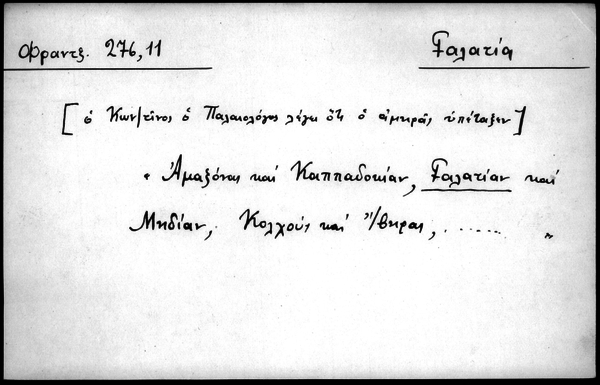 Φραντζ. 276,11 Γαλατία
[ὁ Κων/τῖνος ὁ Παλαιολόγος λέγει ὅτι ὁ ἀμηρᾶς ὑπέταξεν]
" Ἀμαζόνας καί Καππαδοκίαν, Γαλατίαν καί
Μηδίαν, Κολχούς καί Ἴβηρας, ....... "